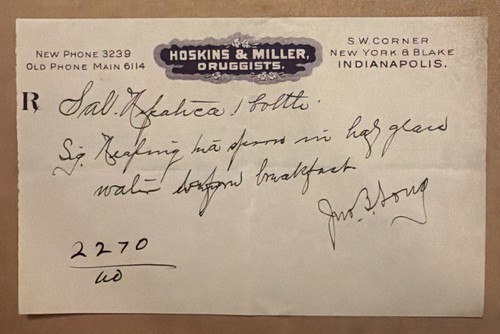 NEW PHONE 3239
OLD PHONE MAIN 6114
HOSKINS & MILLER,
DRUGGISTS.
S.W. CORNER
NEW YORK & BLAKE
INDIANAPOLIS.
R
Sal. Hepatica 1 bottle.
Sig. Heaping tea spoon in half glass
water before breakfast
Jno. B. Long
2270